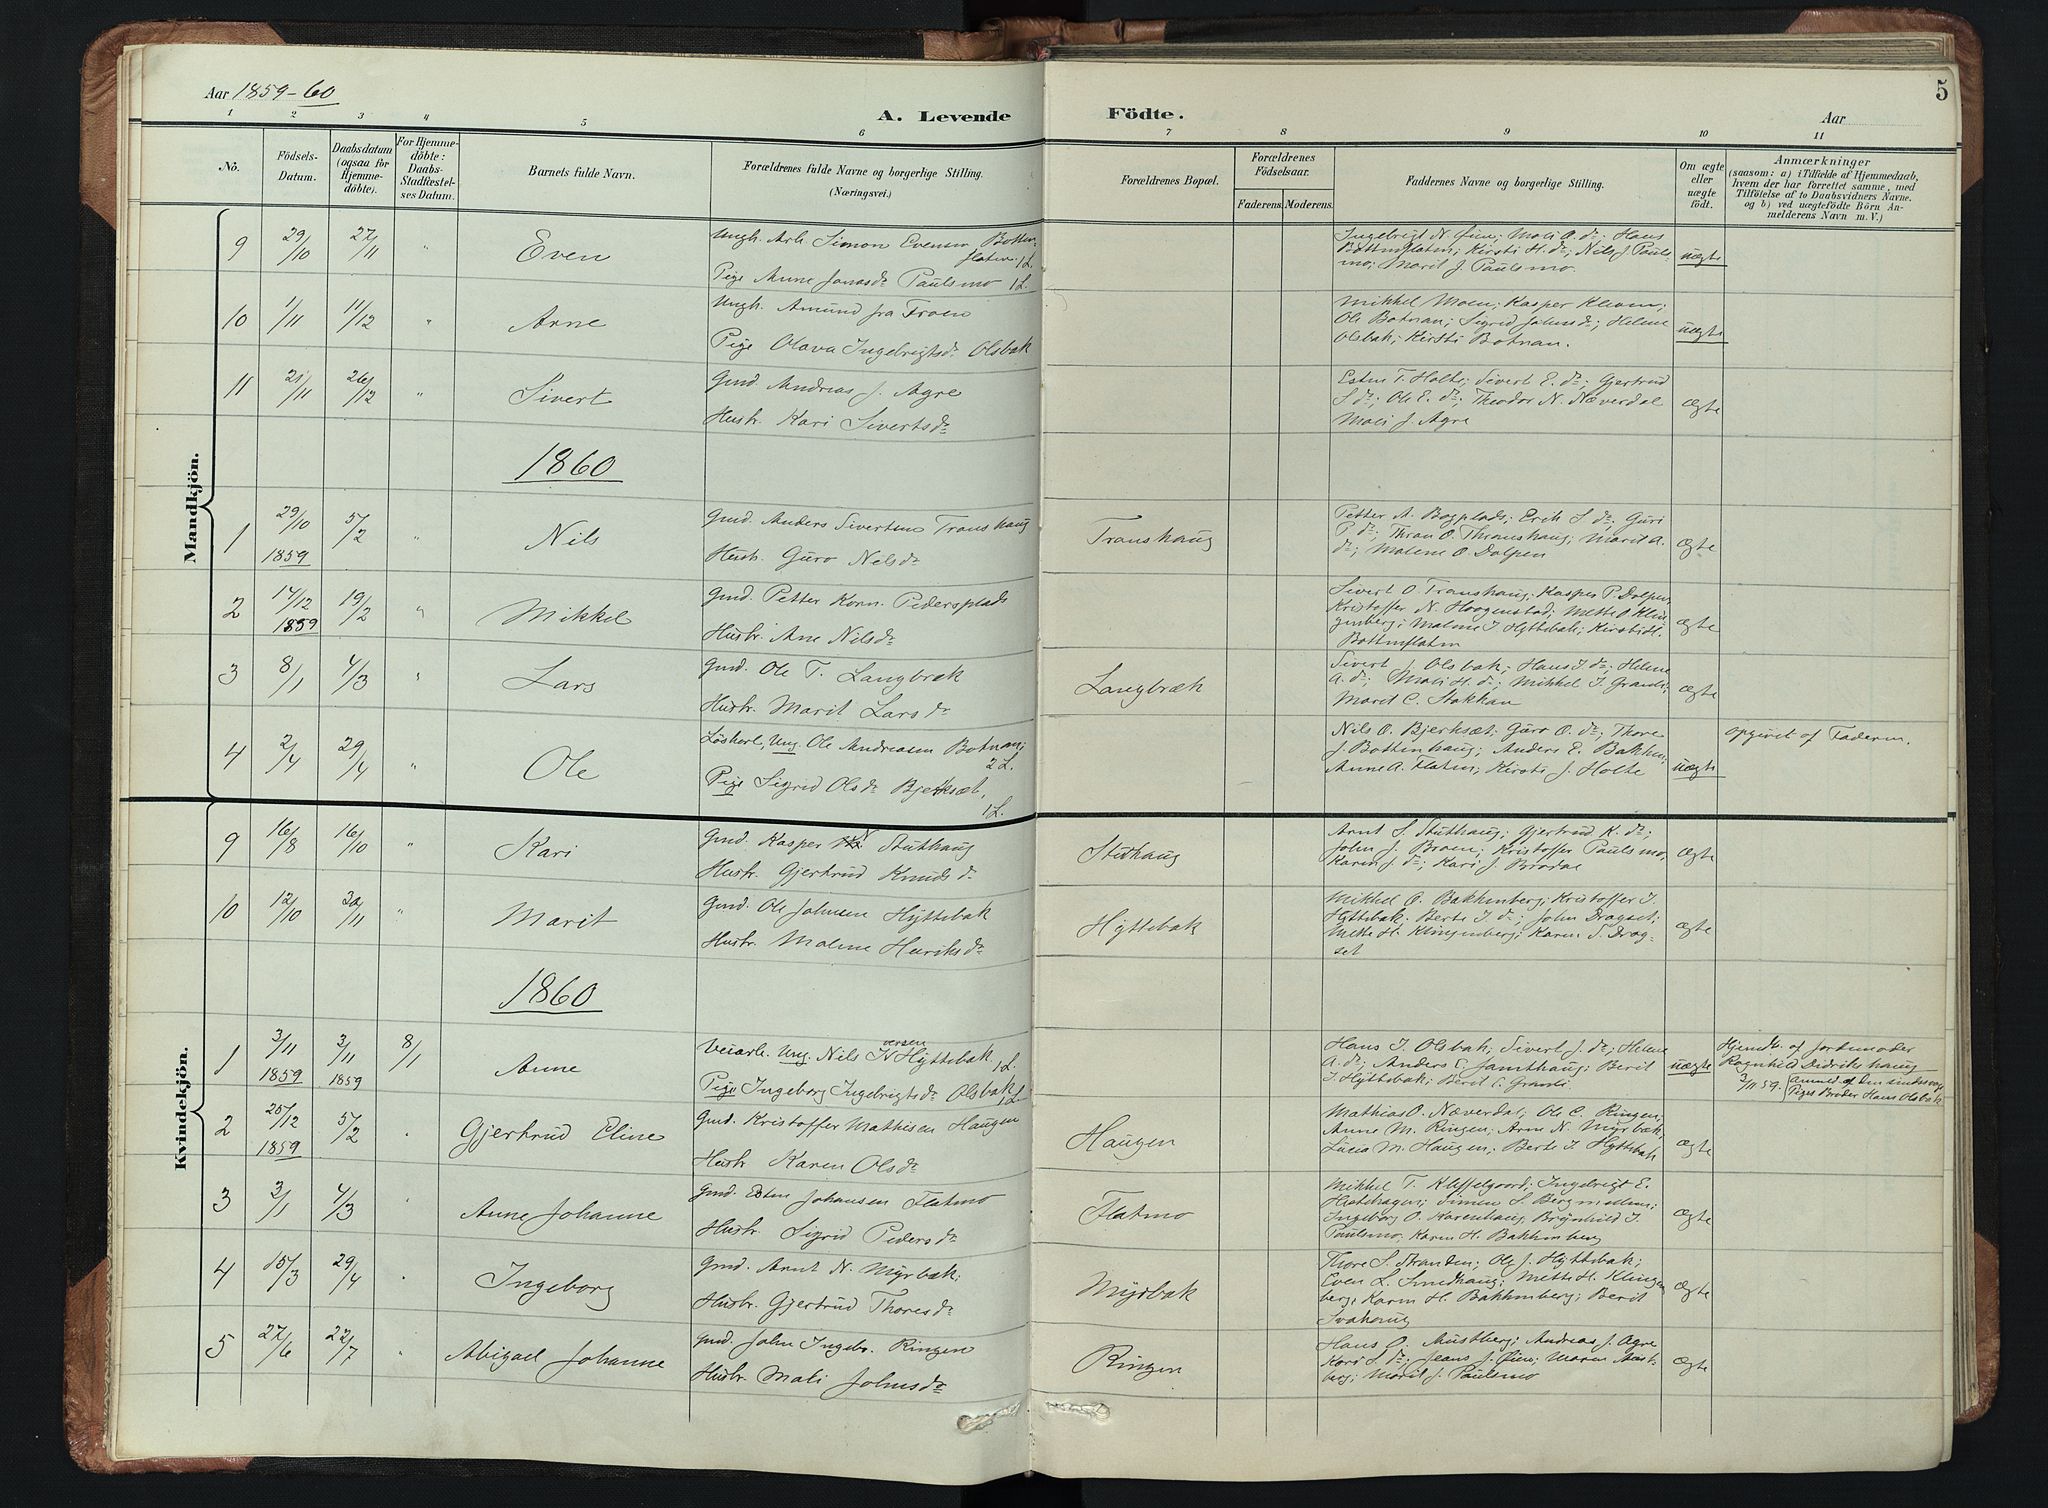 Aar 1859-60
A. Levende Födte.
Aar
5
1 2 3 4 5 6 7 8 9 10 11
No.
Födsels-
Datum.
Daabsdatum
(ogsaa for
Hjemme-
döbte).
For Hjemme-
döbte:
Daabs-
Stadfæstel-
ses Datum.
Barnets fulde Navn.
Forældrenes fulde Navne og borgerlige Stilling.
(Næringsvei.)
Forældrenes Bopæl.
Forældrenes
Födselsaar.
Faderens. Moderens.
Faddernes Navne og borgerlige Stilling.
Om ægte
eller
uægte
födt.
Anmærkninger
(saasom: a) i Tilfælde af Hjemmedaab,
hvem der har forrettet samme, med
Tilföielse af to Daabsvidners Navne.
og b) ved uægtefödte Börn An-
melderens Navn m. V.)
Mandkjön.
9 29/10 27/11 " Even
Ungk. Arb. Simon Evensen Botten-
flaten. 1 L.
Pige Anne Jonasdr Paulsmo 1 L.
Ingebrigt N. Øien; Mali O. dr; Hans
Bottenflaten; Kirsti H. dr; Nils J. Pauls-
mo; Marit J. Paulsmo.
uægte
10 1/11 11/12 " Arne
Ungk. Amund fra Froen
Pige Olava Ingebrigtsdr Olsbak
Mikkel Moen; Kasper Kleven;
Ole Botnan; Sigrid Johnsdr; Helene
Olsbak; Kirsti Botnan.
uægte
11 21/11 26/12 " Sivert
Gmd. Andreas J. Agre
Hustr. Kari Sivertsdr
Esten T. Holte; Sivert E. dr; Gjertrud
S dr; Ole E. dr; Theodor N. Næverdal
Mali J. Agre
ægte
1860
1 29/10 1859 5/2 " Nils
Gmd. Anders Sivertsen Transhaug
Hustr. Guro Nelsdr
Transhaug
Petter A. Bogplads; Erik S. dr; Guri
P. dr; Thran O. Thranshaug; Marit A.
dr; Malene O. Dalpen
ægte
2 17/12 1859 19/2 " Mikkel
Gmd. Petter Korn. Pedersplads
Hustr. Ane Nilsdr
Sivert O. Transhaug; Kasper P. Dolpen,
Kristoffer N. Hoogenstad; Mette O Klin-
genberg; Malene I Hyttebak; Kirsti H.
Bottenflaten
ægte
3 8/1 4/3 " Lars
Gmd. Ole T. Langbræk
Hustr. Marit Larsdr
Langbræk
Sivert J. Olsbak; Hans I. dr; Helene
A. dr; Mali H. dr; Mikkel I. Granli;
Marit C. Stokkan
ægte
4 2/4 29/4 " Ole
Löskarl, Ung. Ole Andreasen Botnan;
2 L.
Pige Sigrid Olsdr Bjerksæt,
1 L.
Nils O. Bjerksæt; Guro O. dr; Thore
J. Bottenhaug; Anders E. Bakken,
Anne A. Flaten; Kirsti J. Holte
uægte
opgivet af Faderen.
Kvindekjön.
9 16/8 16/10 " Kari
Gmd. Kasper N Stuthaug
Hustr. Gjertrud Knudsdr
Stuthaug
Arnt S. Stuthaug; Gjertrud K. dr;
John J. Broen; Kristoffer Paulsmo,
Karen J. dr; Kari J. Brødal
ægte
10 12/10 30/11 " Marit
Gmd. Ole Johnsen Hyttebak
Hustr. Malene Henriksdr
Hyttebak
Mikkel O. Bakkenberg; Kristoffer I.
Hyttebak. Berte I dr; John Dragset;
Mette H. Klingenberg; Karen T. Drag-
set
ægte
1860
1 3/11 1859 3/11 1859 8/1 Anne
Veiarb. Ung. Nils Iversen Hyttebak 1 L.
Pige Ingeborg Ingebrigtsdr Olsbak 1 L
Hans I. Olsbak; Sivert J. dr; Helene
A. dr; Anders C. Jamthaug; Berit
I. Hyttebak; Berit C. Granli
uægte
Hjemdb. af Jordemoder
Ragnhild Didrikshaug
3/11 59. Anmeld. af Den sindssvage
Piges Broder Hans Olsbak
2 25/12 1859 5/2 " Gjertrud Eline
Gmd. Kristoffer Mathisen Haugen
Hustr Karen Olsdr
Haugen
Mathias O. Næverdal; Ole C. Ringen;
Anne M. Ringen; Arne N. Myrbak,
Lucia M. Haugen; Berte I. Hyttebak
ægte
3 2/1 4/3 " Anne Johanne
Gmd. Esten Johansen Flatmo
Hustr. Sigrid Pedersdr
Flatmo
Mikkel T. Kleffelgaard; Ingebrigt E.
Hatshagen; Simen S. Bergmælen;
Ingeborg O. Karenhaug; Brynhild I.
Paulsmo; Karen H. Bakkenberg
ægte
4 15/3 29/4 " Ingeborg
Gmd. Arnt N. Myrbak;
Hustr. Gjertrud Thoresdr
Myrbak
Thore S. Stranden; Ole J. Hyttebak;
Even L. Smedhaug; Mette H. Klingen
berg; Karen H. Bakkenberg; Berit
Svahaug
ægte
5 27/6 22/7 " Abigael Johanne
Gmd. John Ingebr. Ringen
Hustr. Mali Johnsdr
Ringen
Hans O. Austberg; Andreas J. Agre
Kari S. dr; Jeans J. Øien; Maren Aust-
berg; Marit J. Paulsmo
ægte